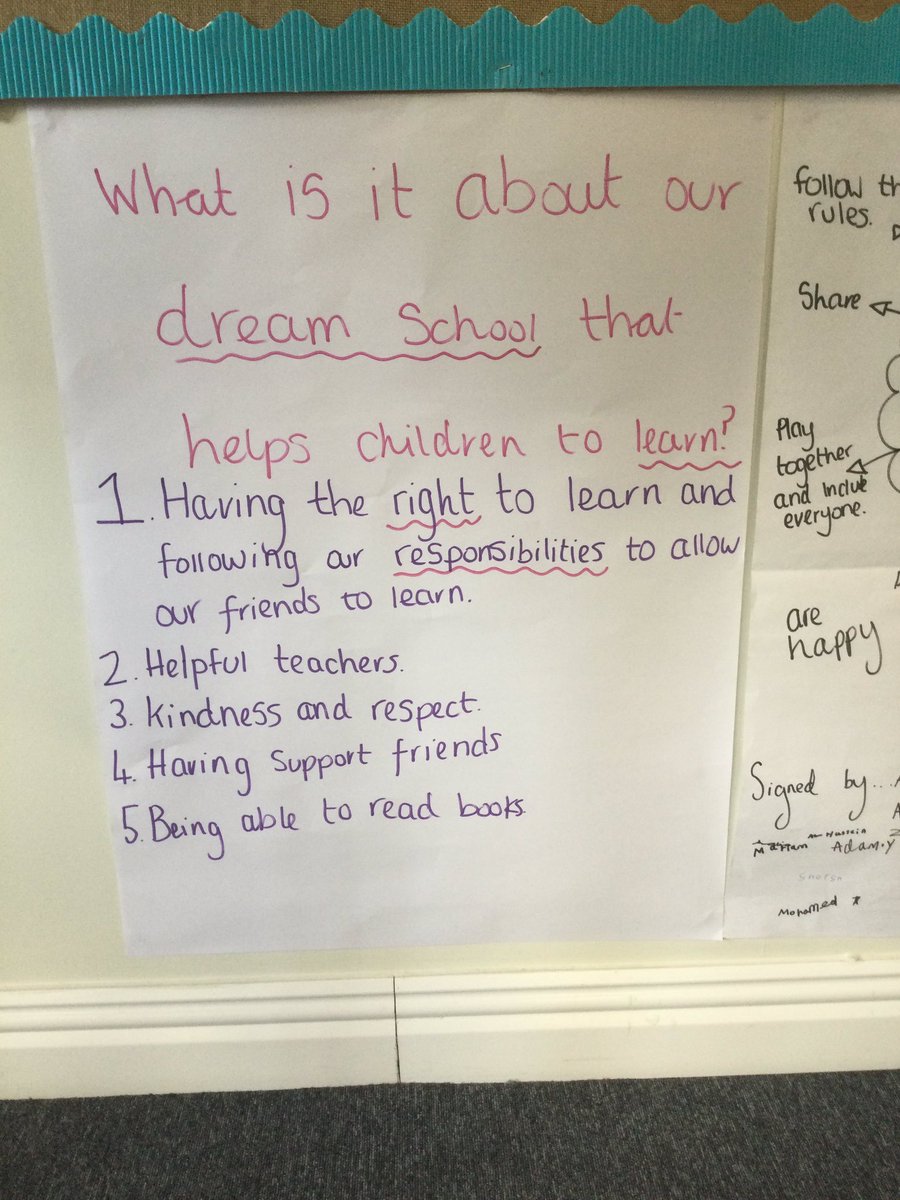 What is it about our
dream School that
helps children to learn?
1. Having the right to learn and
following our responsibilities to allow
our friends to learn.
2. Helpful teachers.
3. Kindness and respect.
4. Having support friends
5. Being able to read books.
follow th
rules.
Share
Play
together
and inclue
everyone.
are
happy
Signed by...
Hussein
Mariam Adam.Y
Mohamed